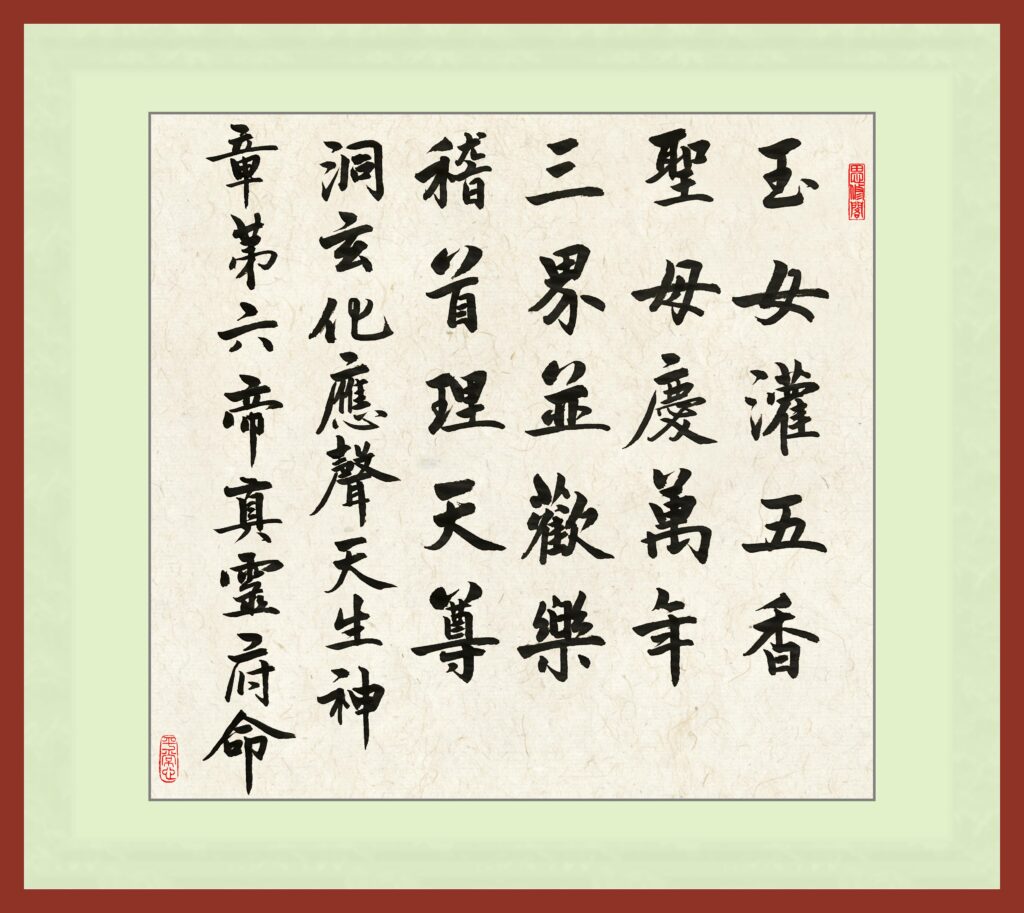 思脩閣
玉女灌五香
聖母慶萬年
三界並歡樂
稽首理天尊
洞玄化應聲天生神
章第六帝真霊府命
平常心